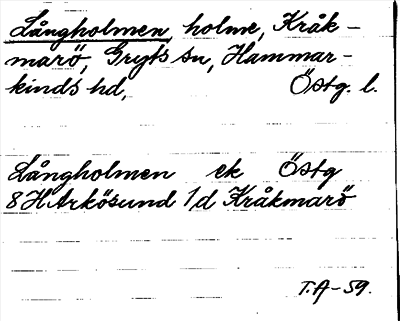 Långholmen, holme, Kråk-
marö, Gryts sn, Hammar-
kinds hd, Östg. l.
Långholmen ek Östg
8 H Arkösund 1/d Kråkmarö
T.A-59.